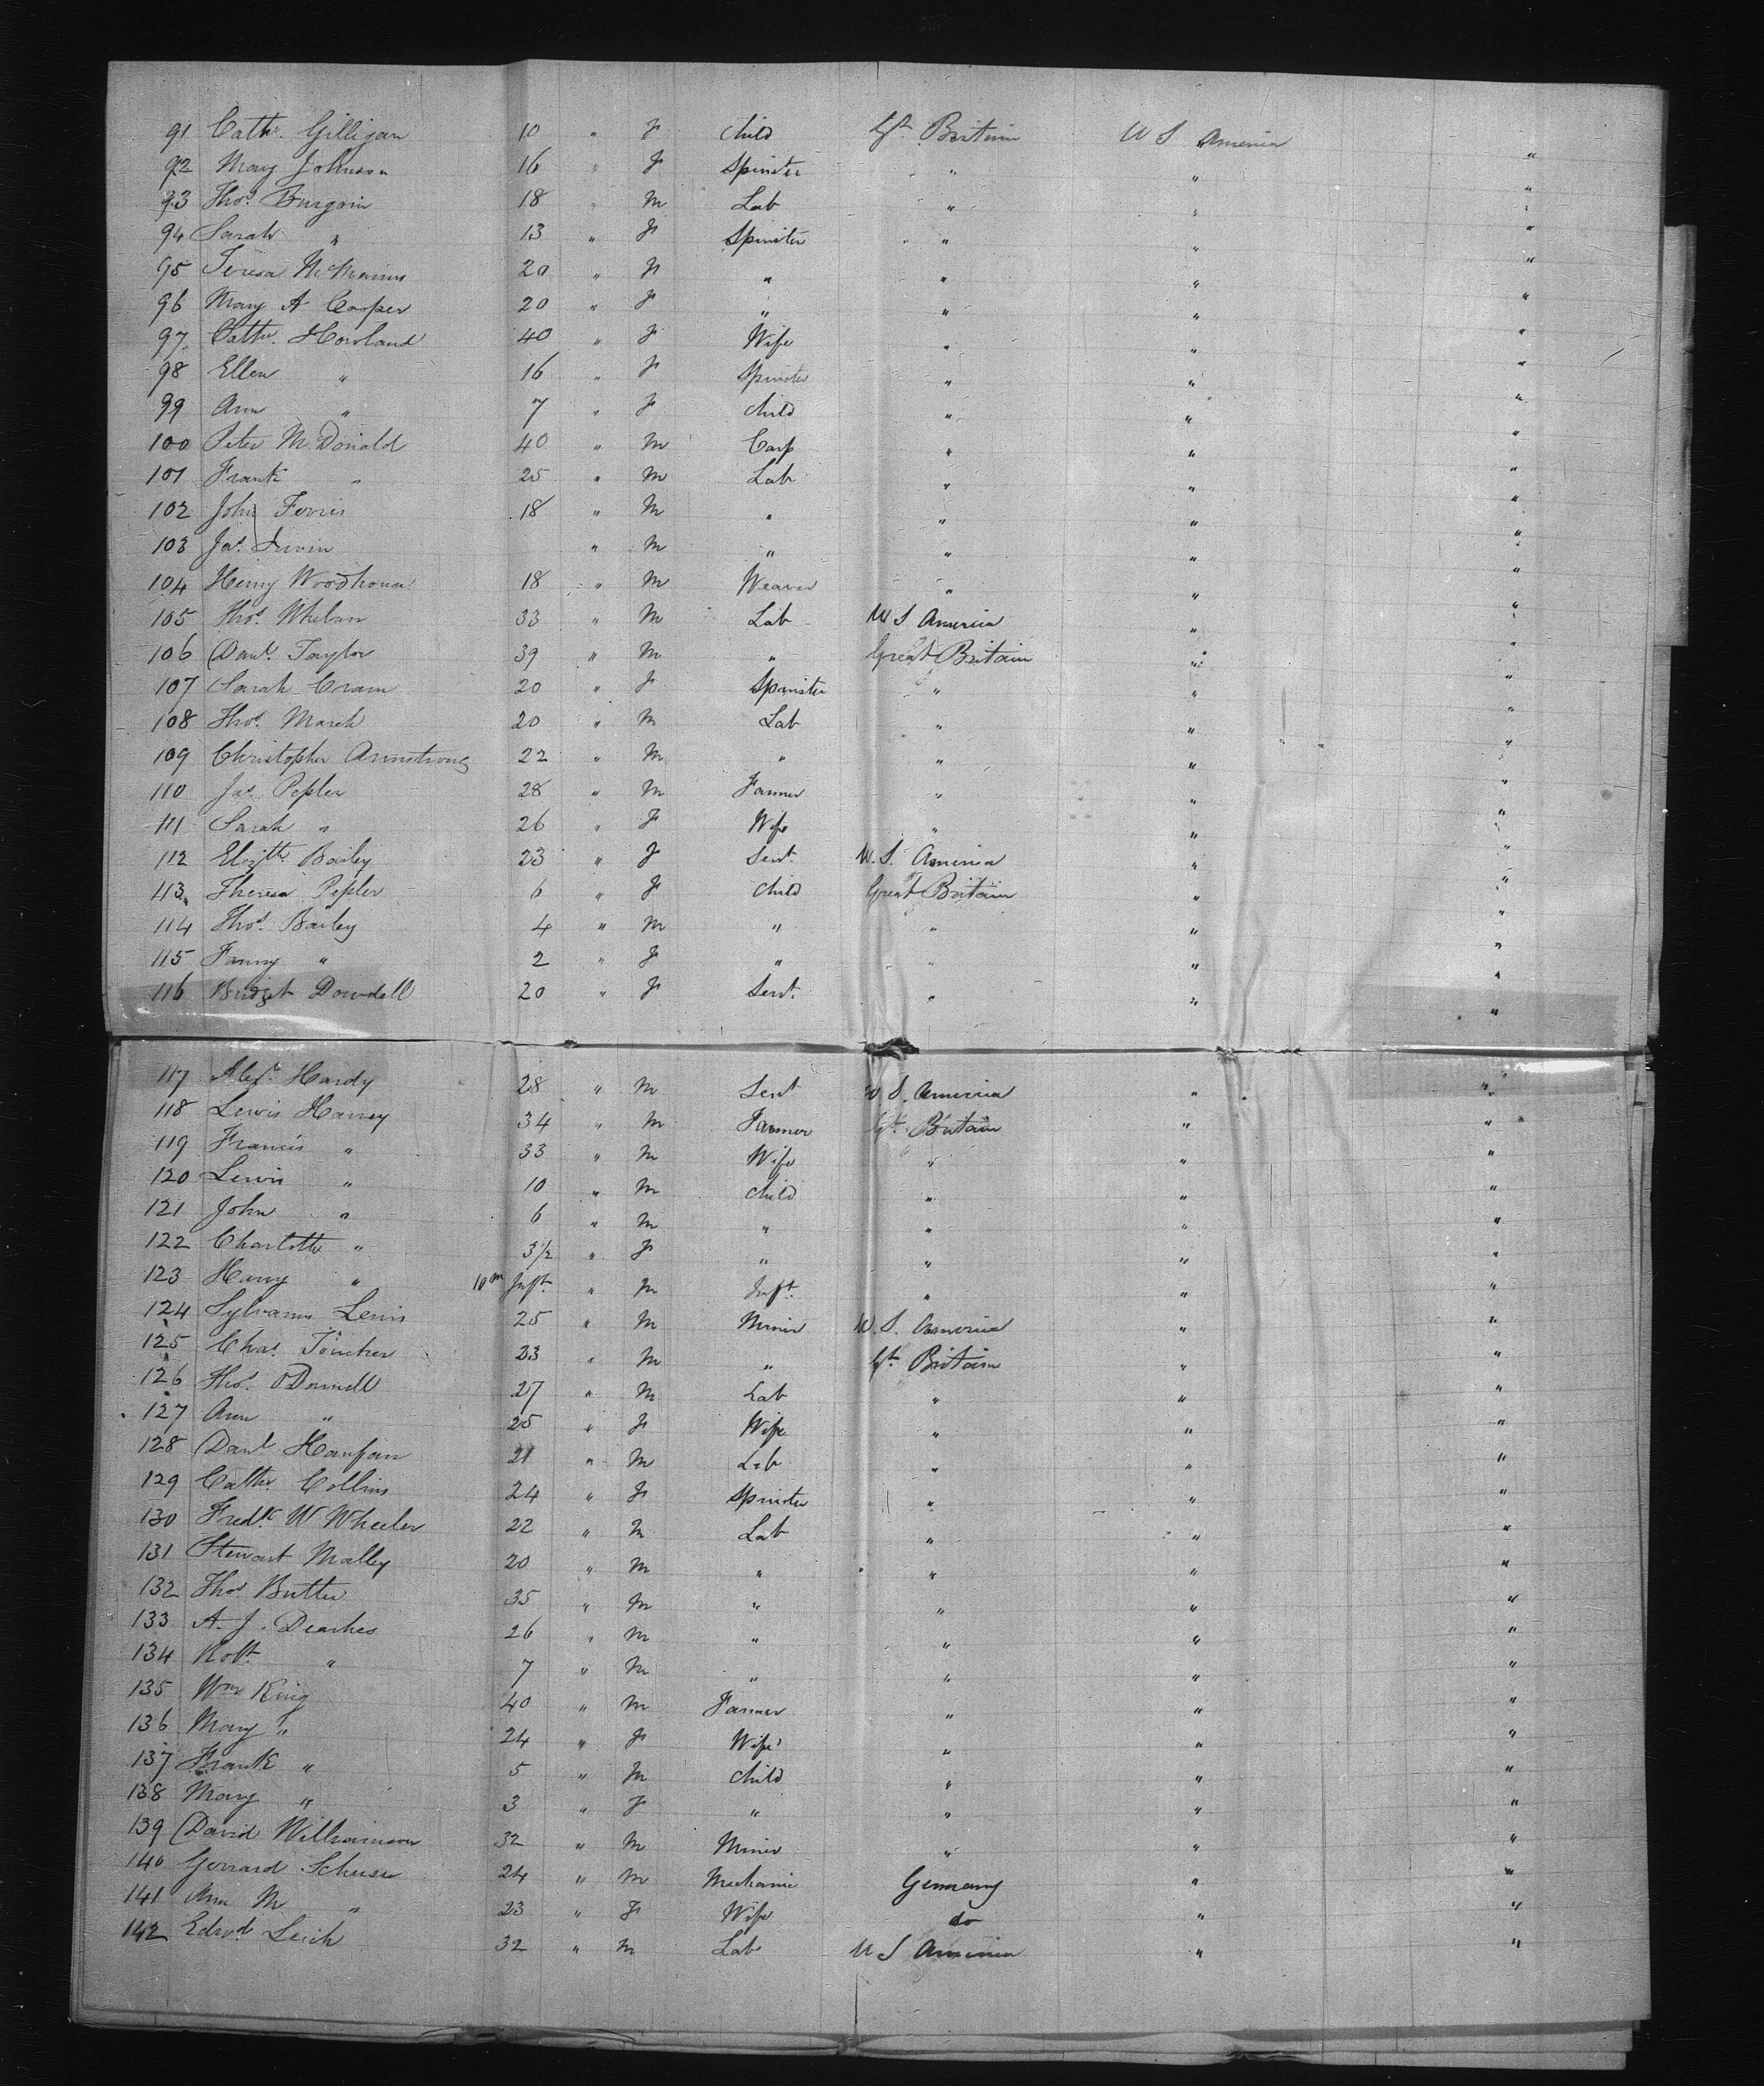 91 Cathr. Gilligan 10 " F Child Gt. Britain U S America
92 Mary Johnson 16 " F Spinster " " "
93 Thos. Burgoin 18 " M Lab " " "
94 Sarah " 13 " F Spinster " " "
95 Teresa McManus 20 " F " " " "
96 Mary A Cooper 20 " F " " " "
97 Cathr. Howland 40 " F Wife " " "
98 Ellen " 16 " F Spinster " " "
99 Ann " 7 " F Child " " "
100 Peter McDonald 40 " M Carp " " "
101 Frank " 25 " M Lab " " "
102 John Ferris 18 " M " " " "
103 Jas. Irwin " M " " " "
104 Henry Woodhouse 18 " M Weaver " " "
105 Thos. Whelan 33 " M Lab U S America " "
106 Danl. Taylor 39 " M " Great Britain " "
107 Sarah Cram 20 " F Spinster " " "
108 Thos. March 20 " M Lab " " "
109 Christopher Armstrong 22 " M " " " "
110 Jas. Pepler 28 " M Farmer " " "
111 Sarah " 26 " F Wife " " "
112 Elizth. Bailey 23 " F Servt. U. S. America " "
113 Theresa Pepler 6 " F Child Great Britain " "
114 Thos. Bailey 4 " M " " " "
115 Fanny " 2 " F " " " "
116 Bridget Dowdall 20 " F Servt. " " "
117 Alexr. Hardy 28 " M Servt U S. America " "
118 Lewis Harvey 34 " M Farmer Gt. Britain " "
119 Francis " 33 " M Wife " " "
120 Lewis " 10 " M Child " " "
121 John " 6 " M " " " "
122 Charlotte " 3½ " F " " " "
123 Harry " 10m Inft. " M Inft. " " "
124 Sylvanus Lewis 25 " M Miner U. S. America " "
125 Chas. 23 " M " Gt. Britain " "
126 Thos. ODonnell 27 " M Lab " " "
127 Ann " 25 " F Wife " " "
128 Danl. 21 " M Lab " " "
129 Cathr. Collins 24 " F Spinster " " "
130 Fredk. W Wheeler 22 " M Lab " " "
131 Stewart Malley 20 " M " " " "
132 Thos Butler 35 " M " " " "
133 A. J. 26 " M " " " "
134 Robt. " 7 " M " " " "
135 Wm King 40 " M Farmer " " "
136 Mary " 24 " F Wife " " "
137 Frank " 5 " M Child " " "
138 Mary " 3 " F " " " "
139 David Williamson 32 " M Miner " " "
140 Gerrard 24 " M Mechanic Germany " "
141 Ann M " 23 " F Wife do " "
142 Edwd Leich 32 " M Lab U S America " "